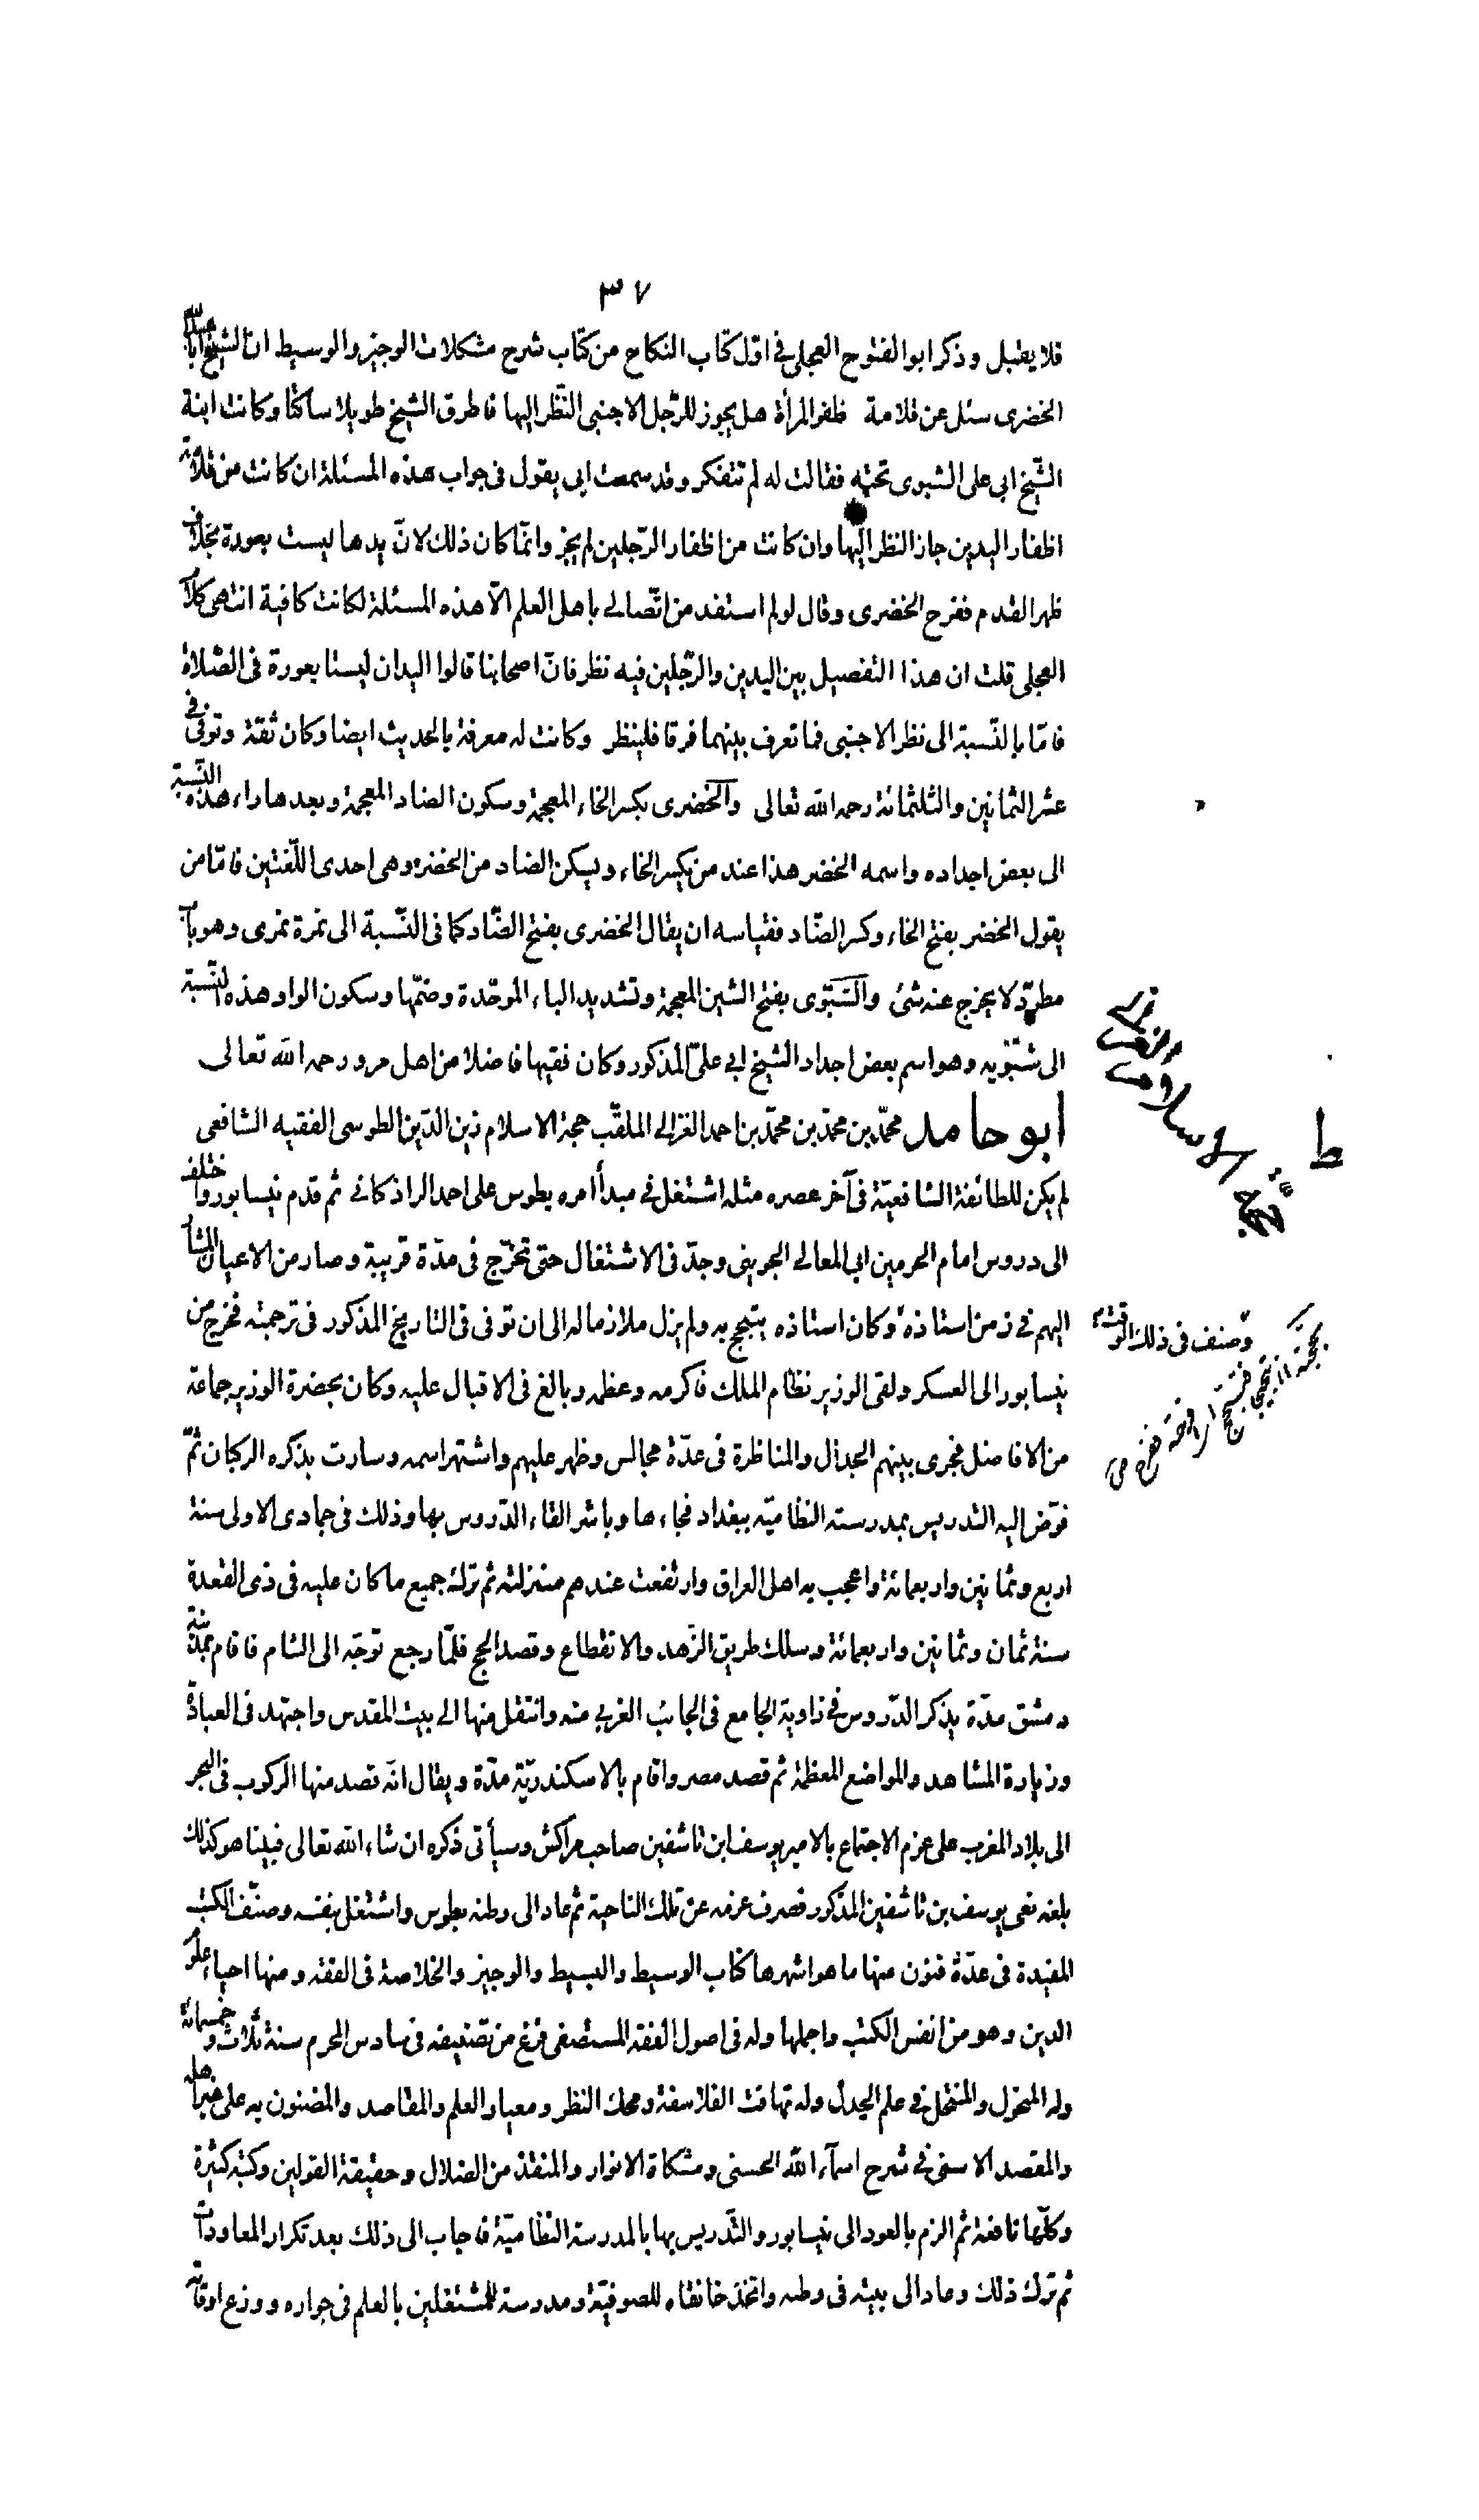 ٣٧
فلا يقبل وذكر ابو الفتوح العجلى فى اوّل كتاب النكاح من كتاب شرح مشكلات الوجيز والوسيط انّ الشيخ ابا عبد الله
الخضرى سئل عن قلامة ظفر المرأة هل يجوز للرّجل الاجنبى النّظر اليها فاطرق الشيخ طويلا ساكتا وكانت ابنة
الشّيخ ابى على الشبوى تحته فقالت له لم تتفكر وقد سمعت ابى يقول فى جواب هذه المسئلة ان كانت من قلامة
اظفار اليدين جاز النظر اليها وان كانت من اظفار الرّجلين لم يجز وانّما كان ذلك لانّ يدها ليست بعورة بخلاف
ظهر القدم ففرح الخضرى وقال لو لم استفد من اتّصالى باهل العلم الّا هذه المسئلة لكانت كافية انتهى كلام
العجلى قلت ان هذا التفصيل بين اليدين والرّجلين فيه نظر فانّ اصحابنا قالوا اليدان ليستا بعورة فى الصّلاة
فامّا بالنّسبة الى نظر الاجنبى فما نعرف بينهما فرقا فلينظر وكانت له معرفة بالحديث ايضا وكان ثقة وتوفى فى
عشر الثمانين والثلثمائة رحمه الله تعالى والخضرى بكسر الخاء المعجمة وسكون الضاد المعجمة وبعدها راء هذه النّسبة
الى بعض اجداده واسمه الخضر هذا عند من يكسر الخاء ويسكن الضاد من الخضر وهى احدى اللّغتين فامّا من
يقول الخضر بفتح الخاء وكسر الضّاد فقياسه ان يقال الخضرى بفتح الضّاد كما فى النّسبة الى نمرة نمرى وهو باب
مطرّد لا يخرج عنه شئ والشّبّوى بفتح الشين المعجمة وتشديد الباء الموحّدة وضمّها وسكون الواو هذه النّسبة
الى شبّويه وهو اسم بعض اجداد الشيخ ابى علىّ المذكور وكان فقيها فاضلا من اهل مرو رحمه الله تعالى
ابو حامد محمّد بن محمّد بن محمّد بن احمد الغزالى الملقّب حجة الاسلام زين الدّين الطوسى الفقيه الشافعى
لم يكن للطائفة الشافعيّة فى آخر عصره مثله اشتغل فى مبدأ امره بطوس على احمد الراذكانى ثم قدم نيسابور واختلف
الى دروس امام الحرمين ابى المعالى الجوينى وجدّ فى الاشتغال حتى تخرّج فى مدّة قريبة وصار من الاعيان المشار
اليهم فى زمن استاذه وكان استاذه يتبجح به ولم يزل ملازما له الى ان توفى فى التاريخ المذكور فى ترجمته فخرج من
وصنف فى ذلك الوقت
نيسابور الى العسكر ولقى الوزير نظام الملك فاكرمه وعظمه وبالغ فى الاقبال عليه وكان بحضرة الوزير جماعة
من الافاضل فجرى بينهم الجدال والمناظرة فى عدّة مجالس وظهر عليهم واشتهر اسمه وسارت بذكره الركبان ثمّ
فوّض اليه التدريس بمدرسته النظاميّه ببغداد فجاءها وباشر القاء الدّروس بها وذلك فى جمادى الاولى سنة
اربع وثمانين واربعمائة واعجب به اهل العراق وارتفعت عندهم منزلته ثم ترك جميع ما كان عليه فى ذى القعدة
سنة ثمان وثمانين واربعمائة وسلك طريق الزّهد والانقطاع وقصد الحج فلمّا رجع توجّه الى الشام فاقام بمدينة
دمشق مدّة يذكر الدّروس فى زاوية الجامع فى الجانب الغربى منه وانتقل منها الى بيت المقدس واجتهد فى العبادة
وزيارة المشاهد والمواضع المعظمة ثم قصد مصر واقام بالاسكندريّة مدّة ويقال انّه قصد منها الركوب فى البحر
الى بلاد المغرب على عزم الاجتماع بالامير يوسف ابن تاشفين صاحب مراكش وسيأتى ذكره ان شاء الله تعالى فبينا هو كذلك
بلغه نعى يوسف بن تاشفين المذكور فصرف عزمه عن تلك الناحية ثم عاد الى وطنه بطوس واشتغل بنفسه وصنّف الكتب
المفيدة فى عدّة فنون منها ما هو اشهرها كتاب الوسيط والبسيط والوجيز والخلاصة فى الفقه ومنها احياء علوم
الدين وهو من انفس الكتب واجملها وله فى اصول الفقه المستصفى فرغ من تصنيفه فى سادس المحرم سنة ثلاث وخمسمائة
وله المنخول والمنتحل فى علم الجدل وله تهافت الفلاسفة ومحك النظر ومعيار العلم والمقاصد والمضنون به على غير اهله
والمقصد الاسنى فى شرح اسمآء الله الحسنى ومشكاة الانوار والمنقذ من الضلال وحقيقة القولين وكتبه كثيرة
وكلّها نافعة ثم الزم بالعود الى نيسابور والتّدريس بها بالمدرسة النظاميّة فاجاب الى ذلك بعد تكرار المعاودات
ثم ترك ذلك وعاد الى بيته فى وطنه واتخذ خانقاه للصوفيّة ومدرسة للمشتغلين بالعلم فى جواره ووزع اوقاته